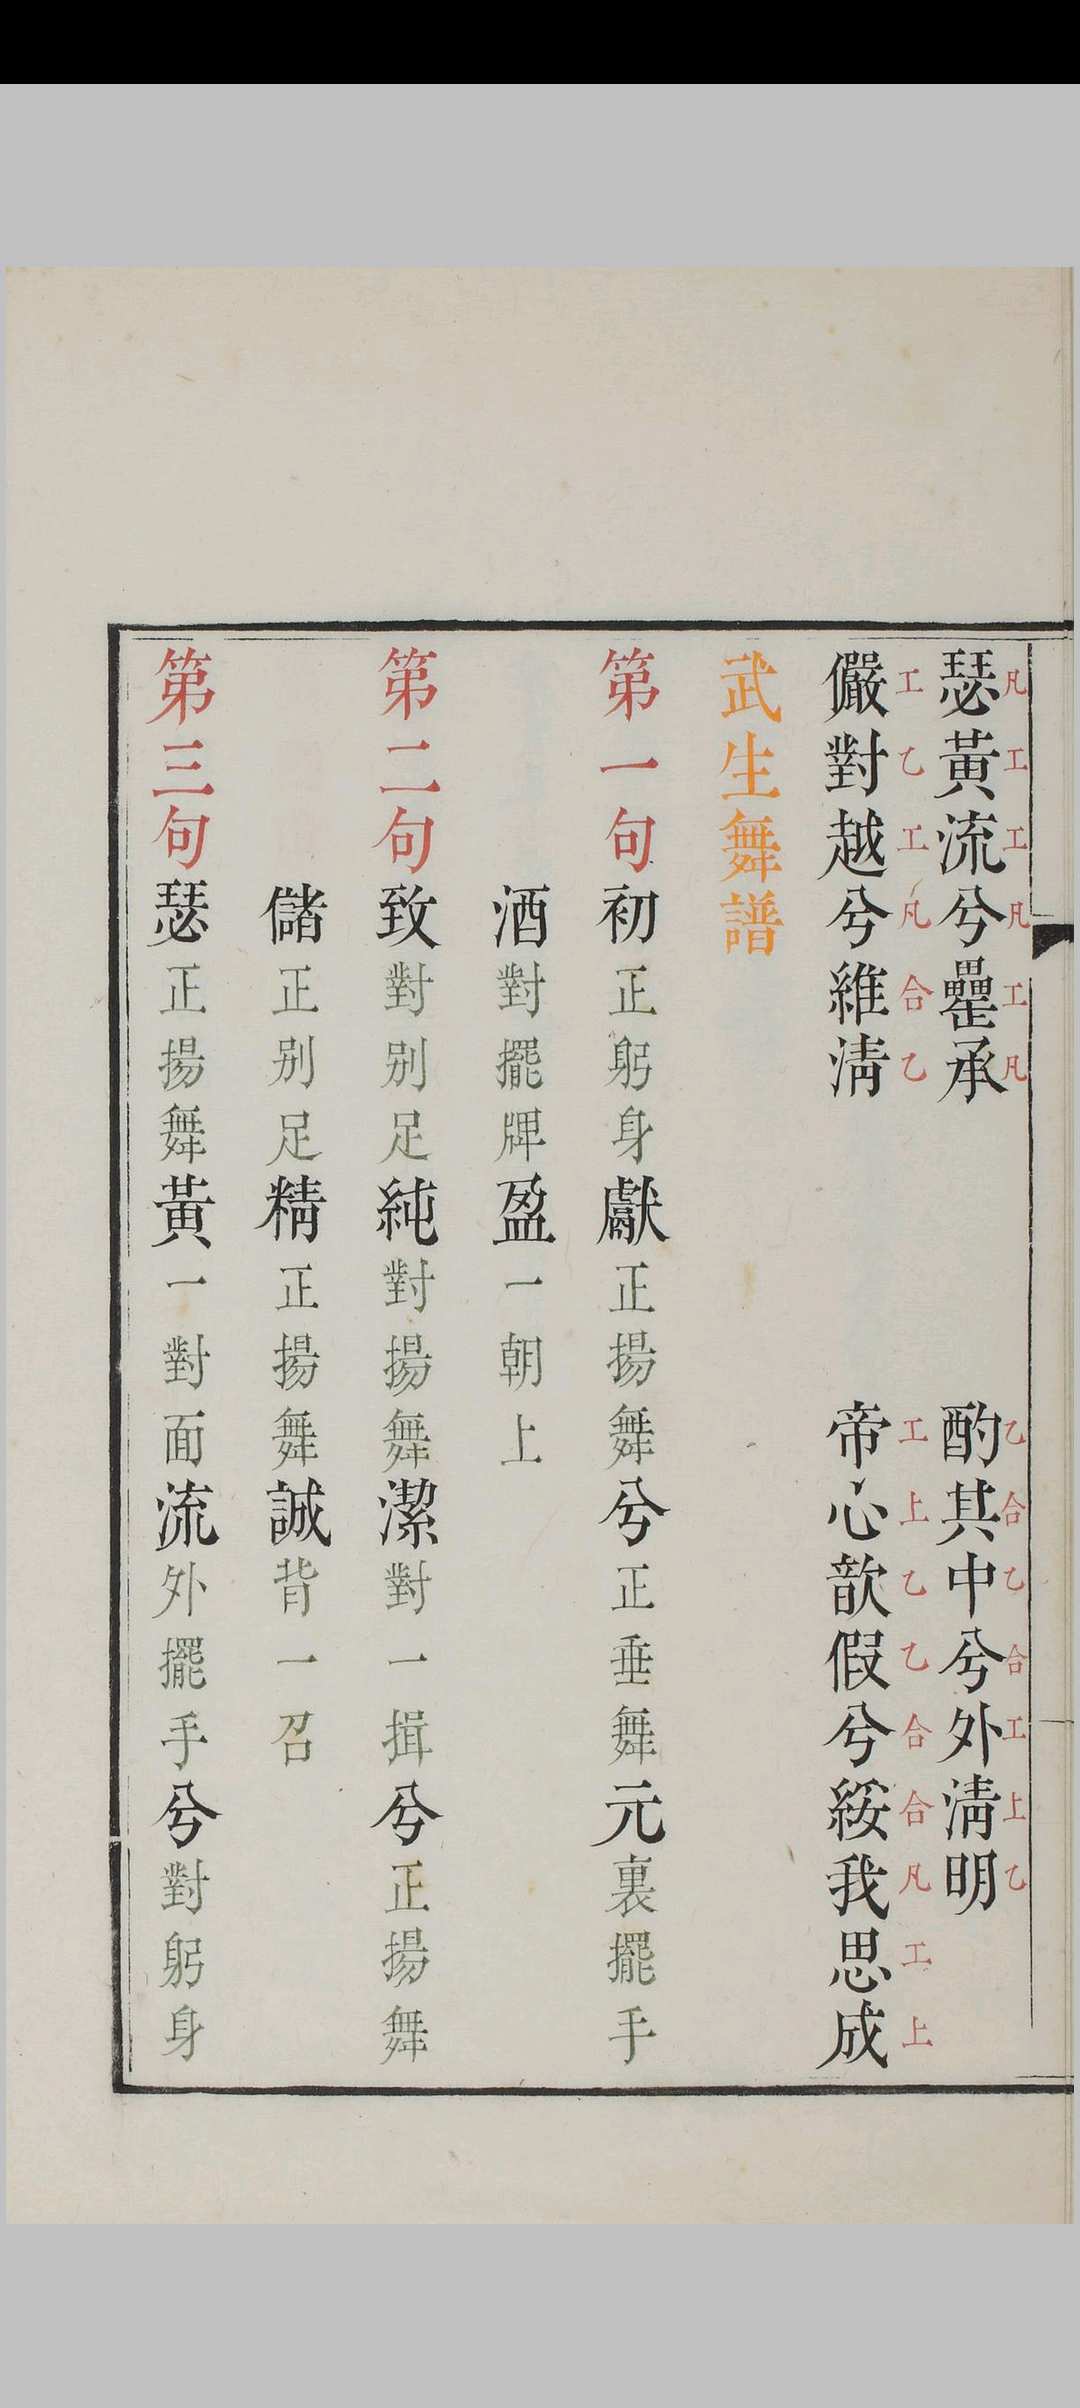 瑟黃流兮罍承　酌其中兮外淸明
凡工工凡工凡　乙合乙合工上乙
儼對越兮維淸　帝心歆假兮綏我思成
工乙工凡合乙　工上乙乙合合凡工上
武生舞譜
第一句初正躬身獻正揚舞兮正垂舞元裏擺手
酒對擺牌盈一朝上
第二句致對别足純對揚舞潔對一揖兮正揚舞
儲正别足精正揚舞誠背一召
第三句瑟正揚舞黃一對面流外擺手兮對躬身